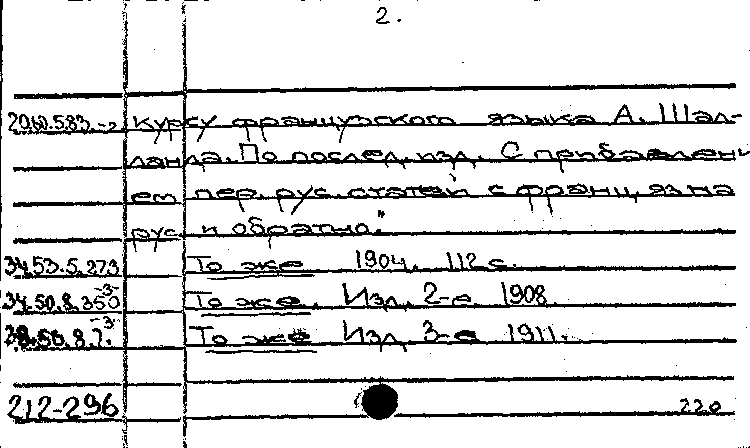 2.
курсу французского языка А. Шал-
ланда. По послед. изд. С прибавлени
ем пер. рус. статей с франц. яз на
рус. и обратно."
34.53.5.273 То же 1904. 112 с.
34.50.8.350 -3- То же. Изд. 2-е 1908.
То же Изд. 3-е 1911.
212-296 220